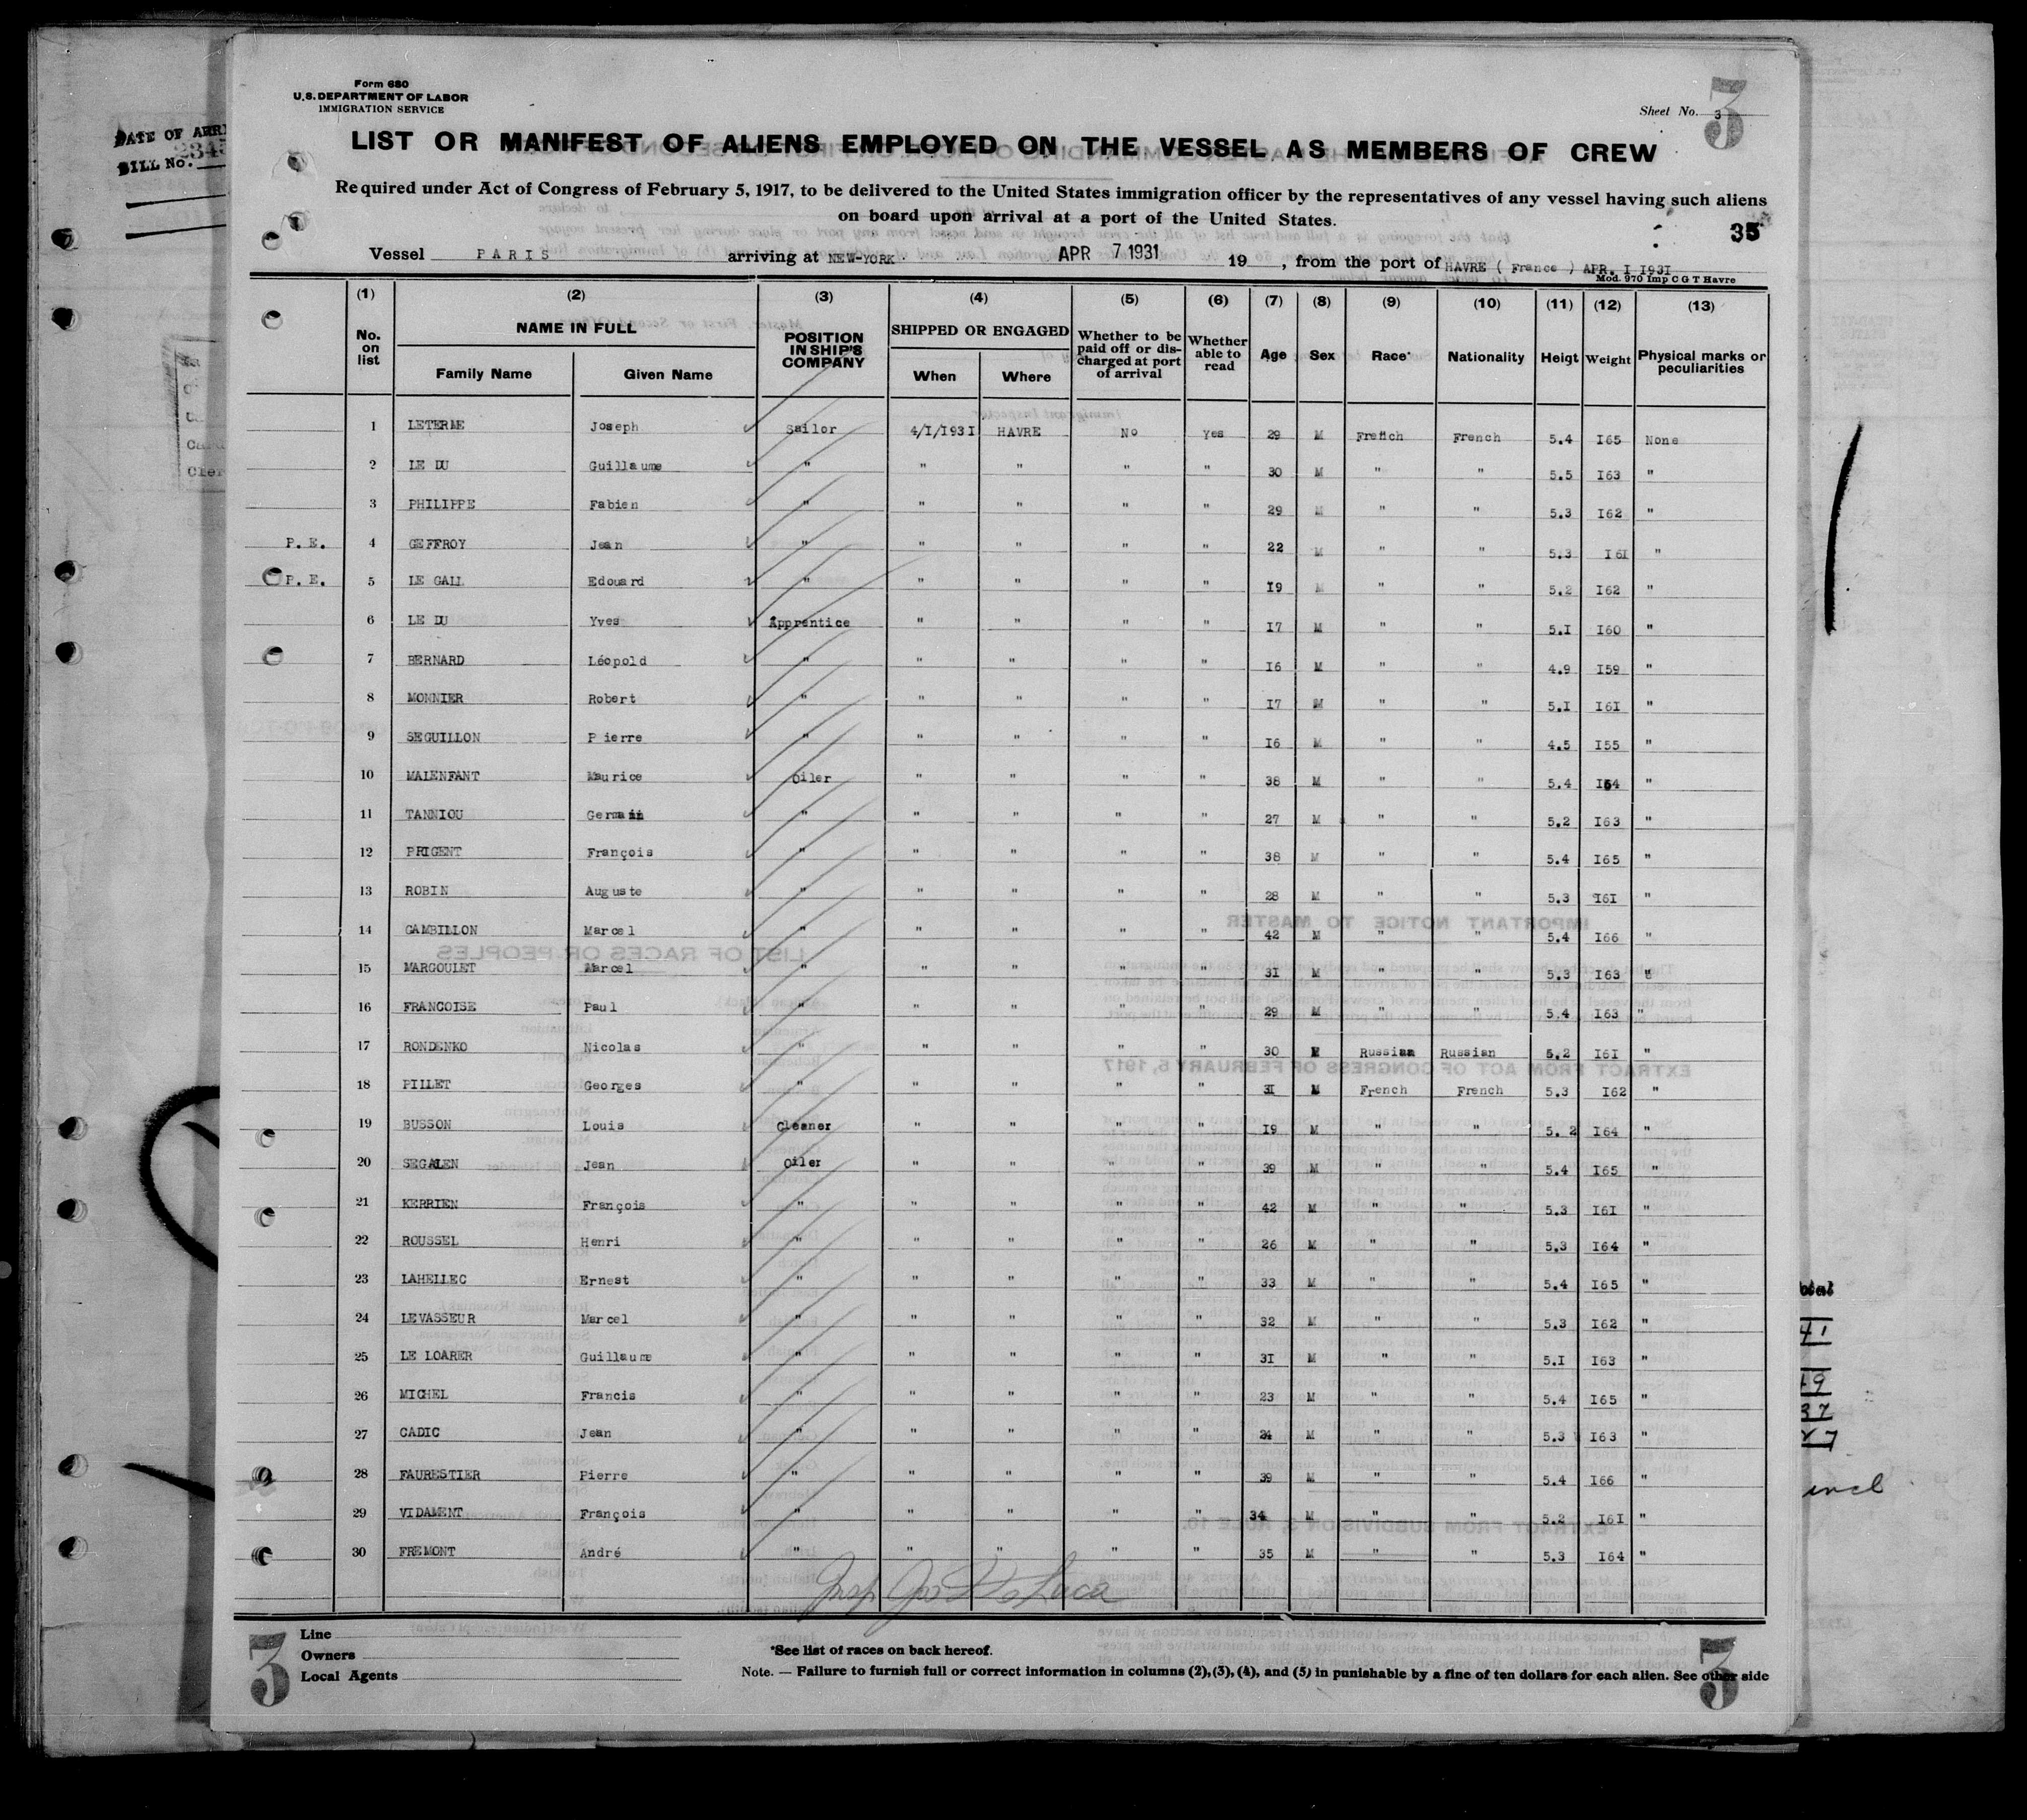 Form 680
U.S. DEPARTMENT OF LABOR
IMMIGRATION SERVICE
DATE OF ARRI
BILL No.
Sheet No. 3
3
LIST OR MANIFEST OF ALIENS EMPLOYED ON THE VESSEL AS MEMBERS OF CREW
Required under Act of Congress of February 5, 1917, to be delivered to the United States immigration officer by the representatives of any vessel having such aliens
on board upon arrival at a port of the United States.
35
Vessel PARIS arriving at NEW-YORK APR 7 1931 19 , from the port of HAVRE ( France ) APR. I I93I
Mod. 970 Imp C G T Havre
(1) (2) (3) (4) (5) (6) (7) (8) (9) (10) (11) (12) (13)
No. on list NAME IN FULL Family Name Given Name POSITION IN SHIP'S COMPANY SHIPPED OR ENGAGED When Where Whether to be paid off or discharged at port of arrival Whether able to read Age Sex Race* Nationality Heigt Weight Physical marks or peculiarities
1 LETERME Joseph Sailor 4/I/193I HAVRE No Yes 29 M French French 5.4 I65 None
2 LE DU Guillaume " " " " " 30 M " " 5.5 I63 "
3 PHILIPPE Fabien " " " " " 29 M " " 5.3 I62 "
P.E. 4 GEFFROY Jean " " " " " 22 M " " 5.3 I6I "
P.E. 5 LE GALL Edouard " " " " " I9 M " " 5.2 I62 "
6 LE DU Yves Apprentice " " " " I7 M " " 5.I I60 "
7 BERNARD Léopold " " " " " I6 M " " 4.9 I59 "
8 MONNIER Robert " " " " " I7 M " " 5.I I6I "
9 SEGUILLON Pierre " " " " " I6 M " " 4.5 I55 "
10 MALENFANT Maurice Oiler " " " " 38 M " " 5.4 I64 "
11 TANNIOU Germain " " " " " 27 M " " 5.2 I63 "
12 PRIGENT François " " " " " 38 M " " 5.4 I65 "
13 ROBIN Auguste " " " " " 28 M " " 5.3 I6I "
14 GAMBILLON Marcel " " " " " 42 M " " 5.4 I66 "
15 MARGOULET Marcel " " " " " 3I M " " 5.3 I63 "
16 FRANCOISE Paul " " " " " 29 M " " 5.4 I63 "
17 RONDENKO Nicolas " " " " " 30 Russian Russian 5.2 I6I "
18 PILLET Georges " " " " " 3I M French French 5.3 I62 "
19 BUSSON Louis Cleaner " " " " I9 M " " 5. 2 I64 "
20 SEGALEN Jean Oiler " " " " 39 M " " 5.4 I65 "
21 KERRIEN François " " " " " 42 M " " 5.3 I6I "
22 ROUSSEL Henri " " " " " 26 M " " 5.3 I64 "
23 LAHELLEC Ernest " " " " " 33 M " " 5.4 I65 "
24 LEVASSEUR Marcel " " " " " 32 M " " 5.3 I62 "
25 LE LOARER Guillaume " " " " " 3I M " " 5.I I63 "
26 MICHEL Francis " " " " " 23 M " " 5.4 I65 "
27 CADIC Jean " " " " " 24 M " " 5.3 I63 "
28 FAURESTIER Pierre " " " " " 39 M " " 5.4 I66 "
29 VIDAMENT François " " " " " 34 M " " 5.2 I6I "
30 FREMONT André " " " " " 35 M " " 5.3 I64 "
Line
Owners
Local Agents
*See list of races on back hereof.
Note. — Failure to furnish full or correct information in columns (2), (3), (4), and (5) in punishable by a fine of ten dollars for each alien. See other side
3
3